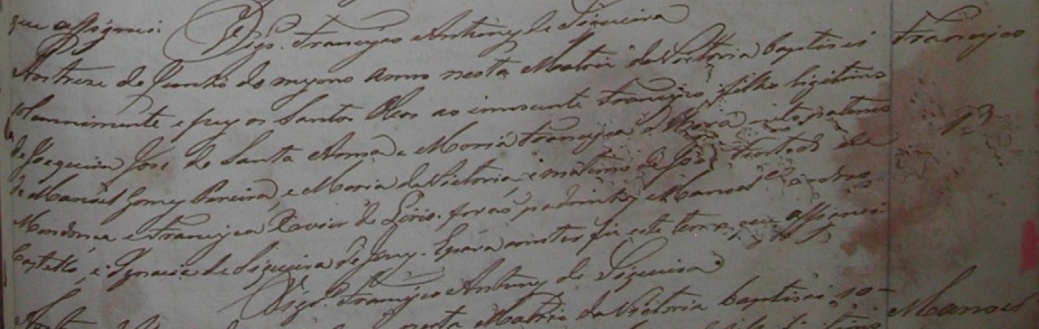 que assignei. Vigr.º Francisco Antonio de Siqueira
Aos treze de Junho do mesmo anno nesta Matriz da Victoria baptisei Francisco
solemnimente e puz os Santos Oleos ao innocente Francisco filho ligitimo
de Joaquim José de Santa Anna e Maria Francisca neto paterno
de Manoel Gomes Pereira, e Maria da Victoria e materno de José de
Mendonça e Francisca Xavier de forão padrinhos Manoel
Castello, e Ignacia de Siqueira de Jesus. E para constar fiz este termo, que assignei.
Vigr.º Francisco Antonio de Siqueira
nesta Matriz da Victoria baptisei so- Manoel